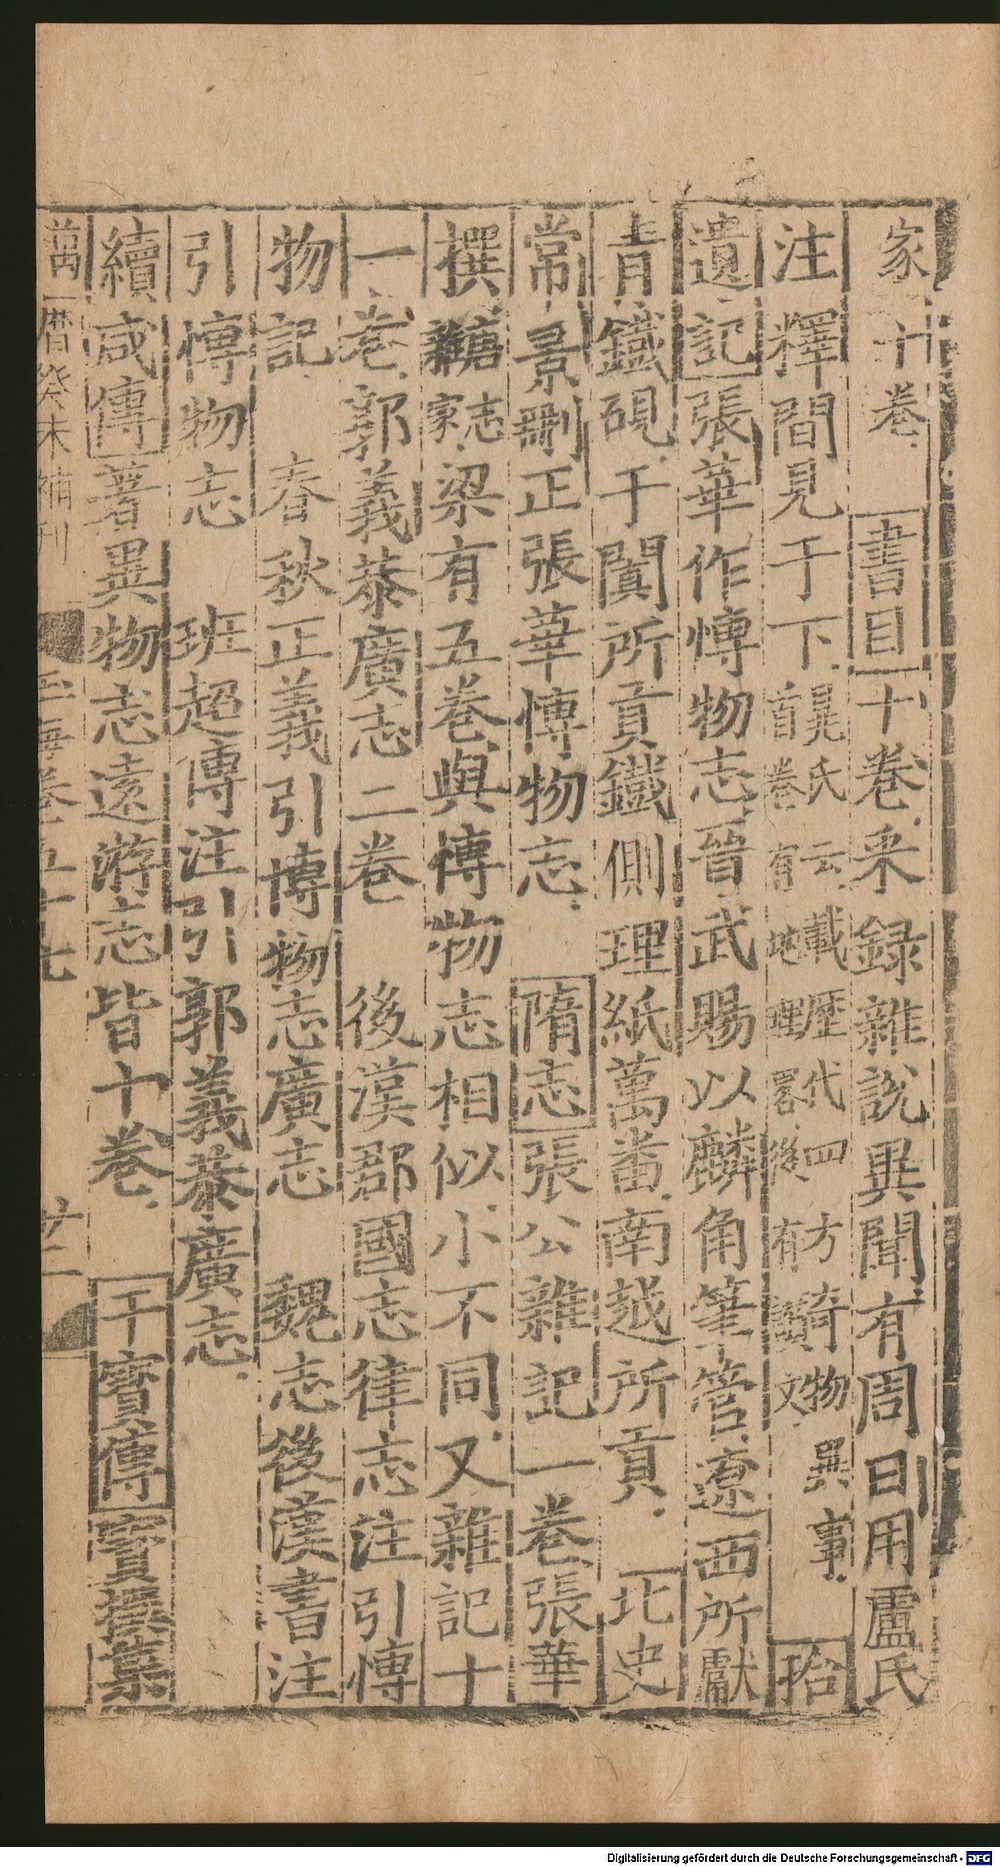 家十卷 書目十卷采録雜説異聞有周日用盧氏
注釋間見于下晁氏云載歷代四方竒物異事首卷有地理畧後有讚文 拾
遺記張華作愽物志晉武賜以麟角筆管遼西所獻
青鐵硯于闐所貢鐵側理紙萬番南越所貢 北史
常景刪正張華愽物志 隋志張公雜記一卷張華
撰雜家梁有五卷與博物志相似小不同又雜記十
一卷郭義恭廣志二卷 後漢郡國志律志注引愽
物記 春秋正義引博物志廣志 魏志後漢書注
引愽物志 班超傳注引郭義恭廣志
續咸傳著異物志遠游志皆十卷 干寶傳寶撰集
萬曆癸未補刋 玉海卷五十七 廿二
Digitalisierung gefördert durch die Deutsche Forschungsgemeinschaft - DFG